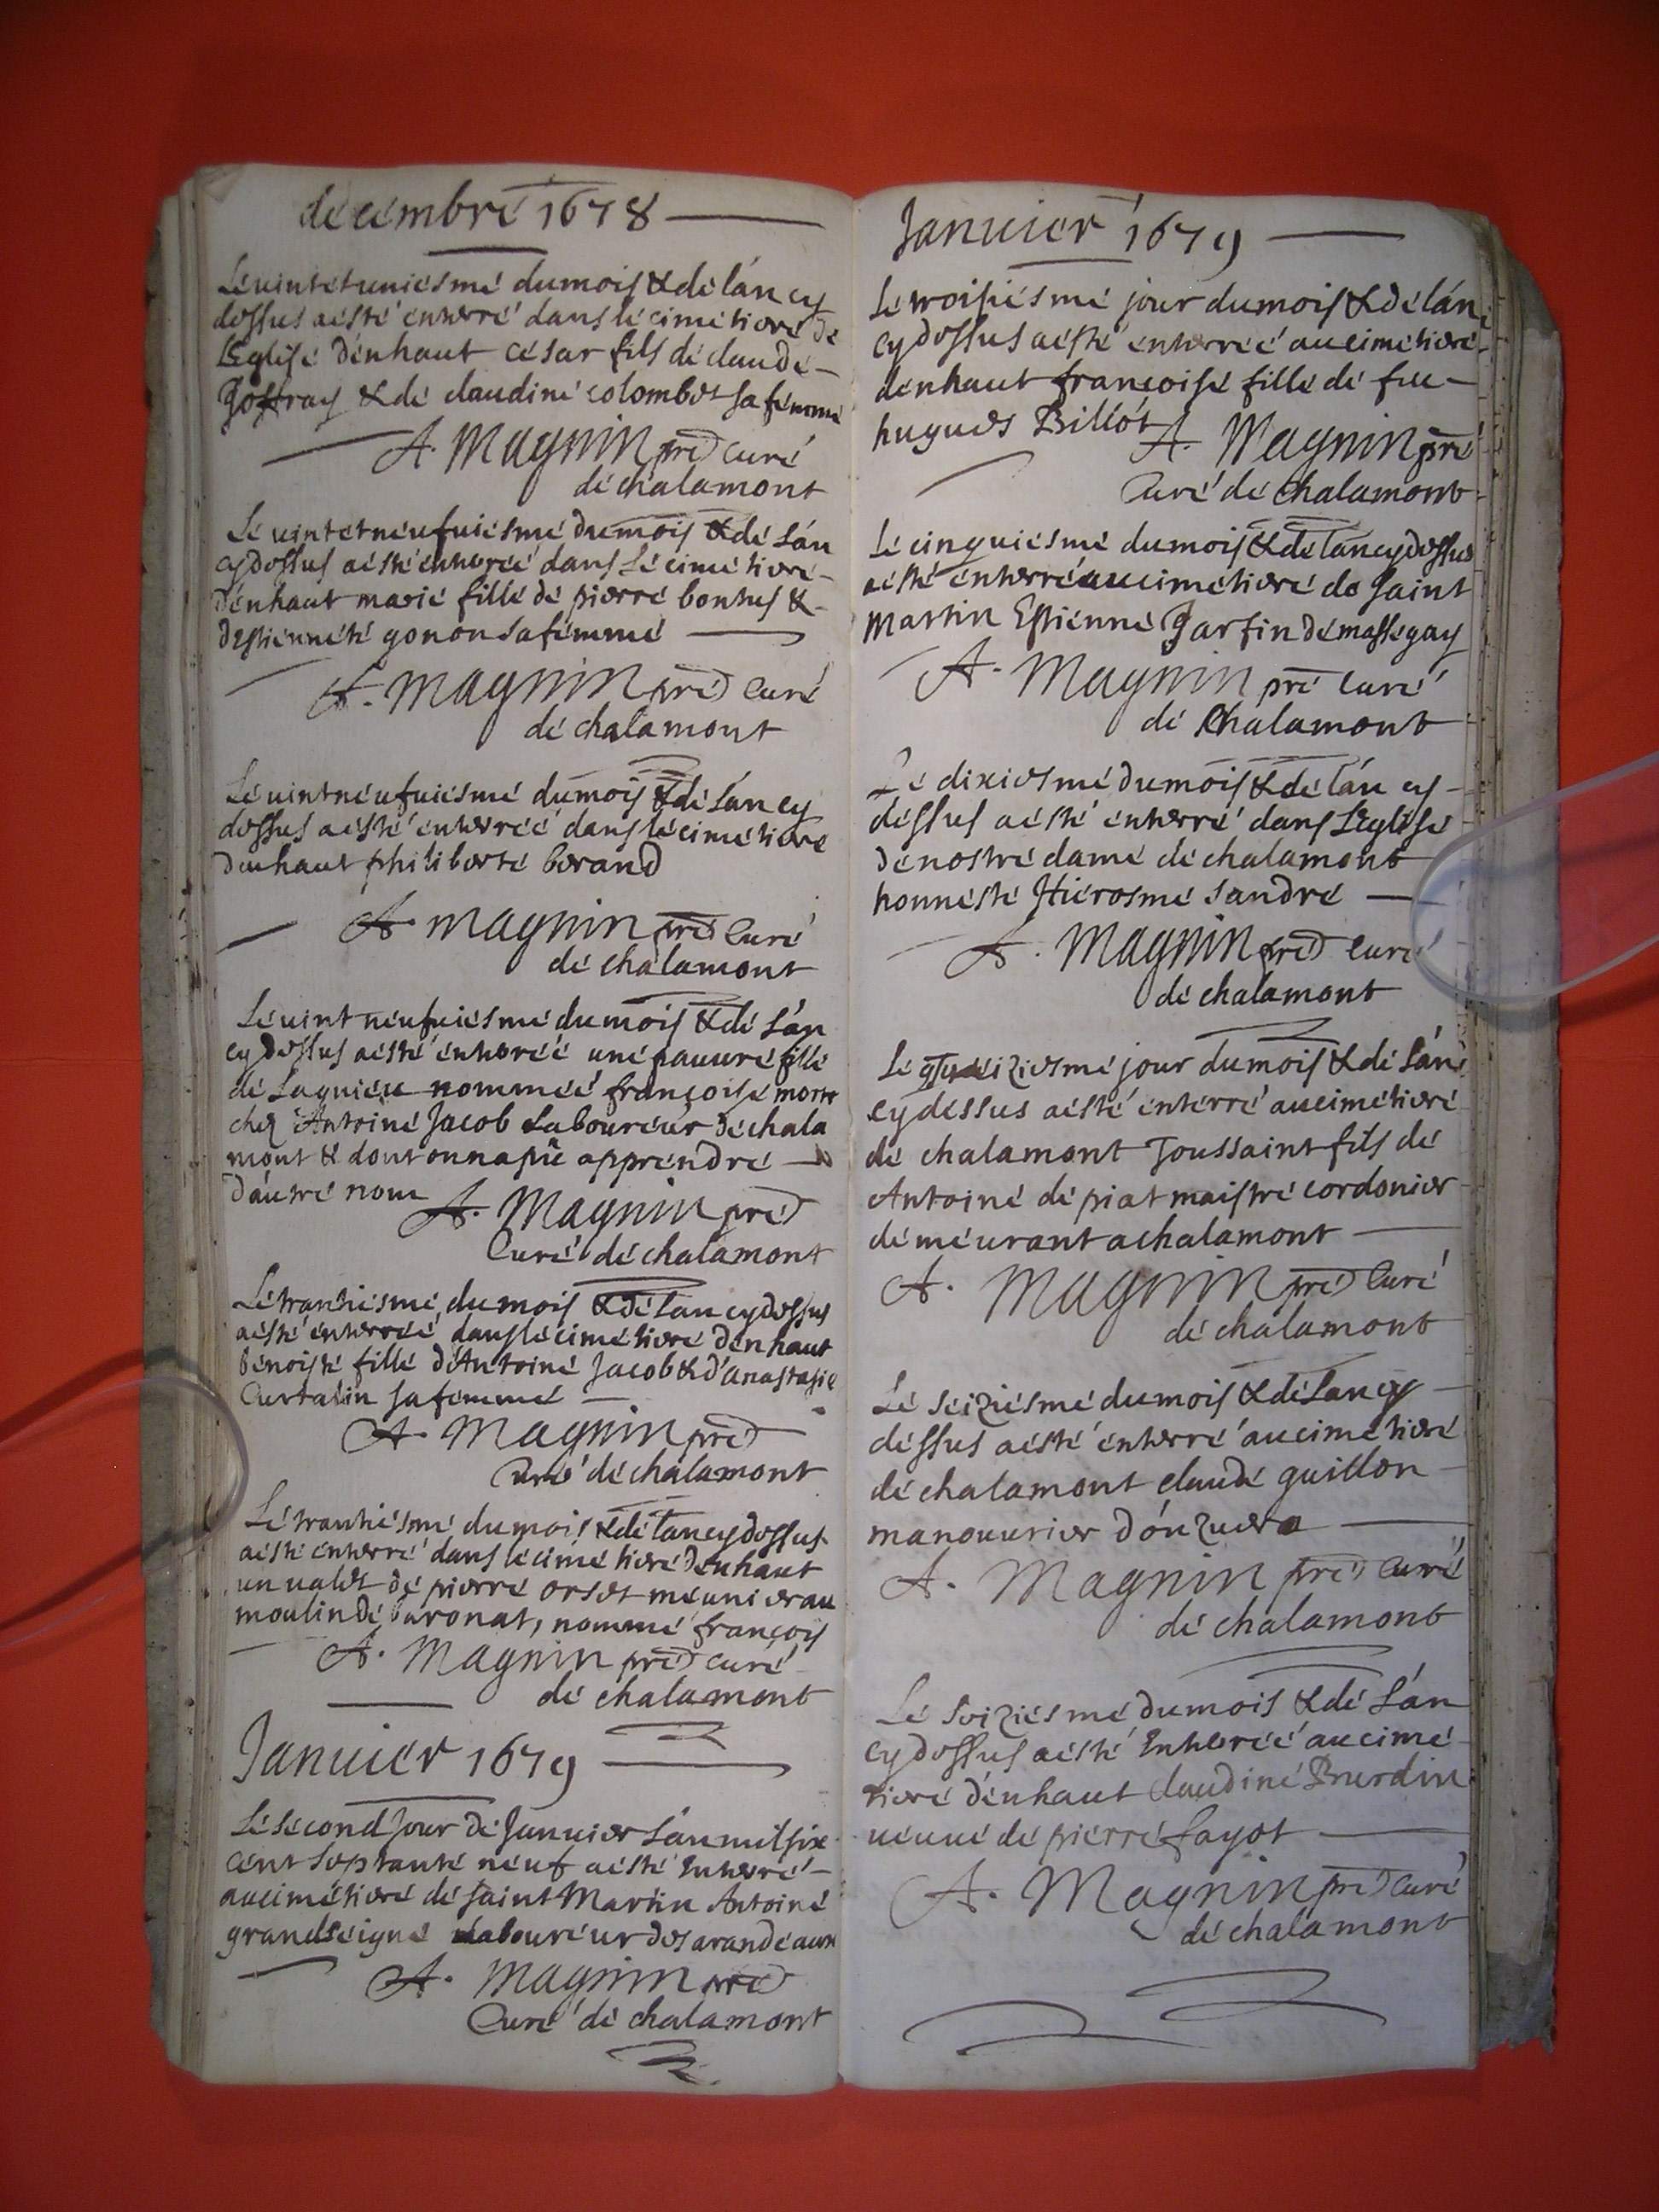 décémbré 1678
Lé uintétuniésmé du mois & dé lán cy
dessus aésté énterré dans lé cimétieré dé
L'Eglisé dénhaut césar fils dé claudé
Joffray & dé claudiné colombet sa fémmé
A. Magnin pré curé
dé chalamont
Lé uintetnéufuiésmé du mois & dé Lán
cy dessus aésté énterréé dans Lé cimétieré
dénhaut marié fillé dé pierré bontus &
d'Estiénnété gonon sa fémmé
A. Magnin pré Curé
dé chalamont
Lé uintnéufuiésmé du mois & dé Lán cy
dessus aésté énterréé dans lé cimétiere
dénhaut philiberté berand
A. Magnin pré Curé
dé chalamont
Lé uint néufuiésmé du mois & dé Lán
cy dessus aésté énterréé uné pauuré fillé
dé Lagniéu nomméé françoisé morte
chez Antoiné Jacob Labouréur dé chala
mont & dont on na pû appréndré
dáutré nom A. Magnin pré
Curé dé chalamont
Lé trantiésmé du mois & dé lan cy dessus
aésté énterréé dans lé cimétieré dénhaut
bénoisté fillé d'Antoiné Jacob & d'anastasie
Curtalin sa fémmé
A. Magnin pré
Curé dé chalamont
Lé trantiésmé du mois & dé lan cy dessus
aésté énterré dans lé cimétieré dénhaut
un ualet dé pierré orset méunier au
moulin dé baronat, nommé françois
A. Magnin pré curé
dé chalamont
Januiér 1679
Lé sécond Jour dé Januier Lán mil six
cént septanté néuf aésté Enterré
au cimétieré dé saint Martin Antoiné
grandséigné Labouréur des arandéaux
A. Magnin pré
Curé dé chalamont
Januier 1679
Lé troisiésmé jour du mois & dé lán
cy dessus aésté énterréé au cimétieré
dénhaut françoisé fillé dé feu
hugues Billót A. Magnin pré
Curé dé Chalamont
Lé cinquiésmé du mois & dé lan cy dessus
aésté énterré au cimétieré de saint
Martin Estiénné Jarfin dé massegay
A. Magnin pré curé
dé Chalamont
Lé dixiesmé du mois & dé lán cy
déssus aésté énterré dans L'Eglisé
dé nostré damé dé chalamont
honnésté Hiérosmé sandré
A. Magnin pré curé
dé chalamont
Lé jour du mois & dé Lán
cy déssus aésté énterré au cimétieré
dé chalamont Toussaint fils dé
Antoiné dé piat maistré cordonier
déméurant a chalamont
A. Magnin pré Curé
dé chalamont
Lé séiziésmé du mois & dé Lan cy
déssus aésté énterré au cimétieré
dé chalamont claudé guillon
manouurier
A. Magnin pré curé
dé chalamont
Lé seiziésmé du mois & dé Lán
cy dessus aésté Enterréé au cimé
tieré dénhaut Claudiné Burdin
uéuué dé pierré fayot
A. Magnin pré curé
dé chalamont